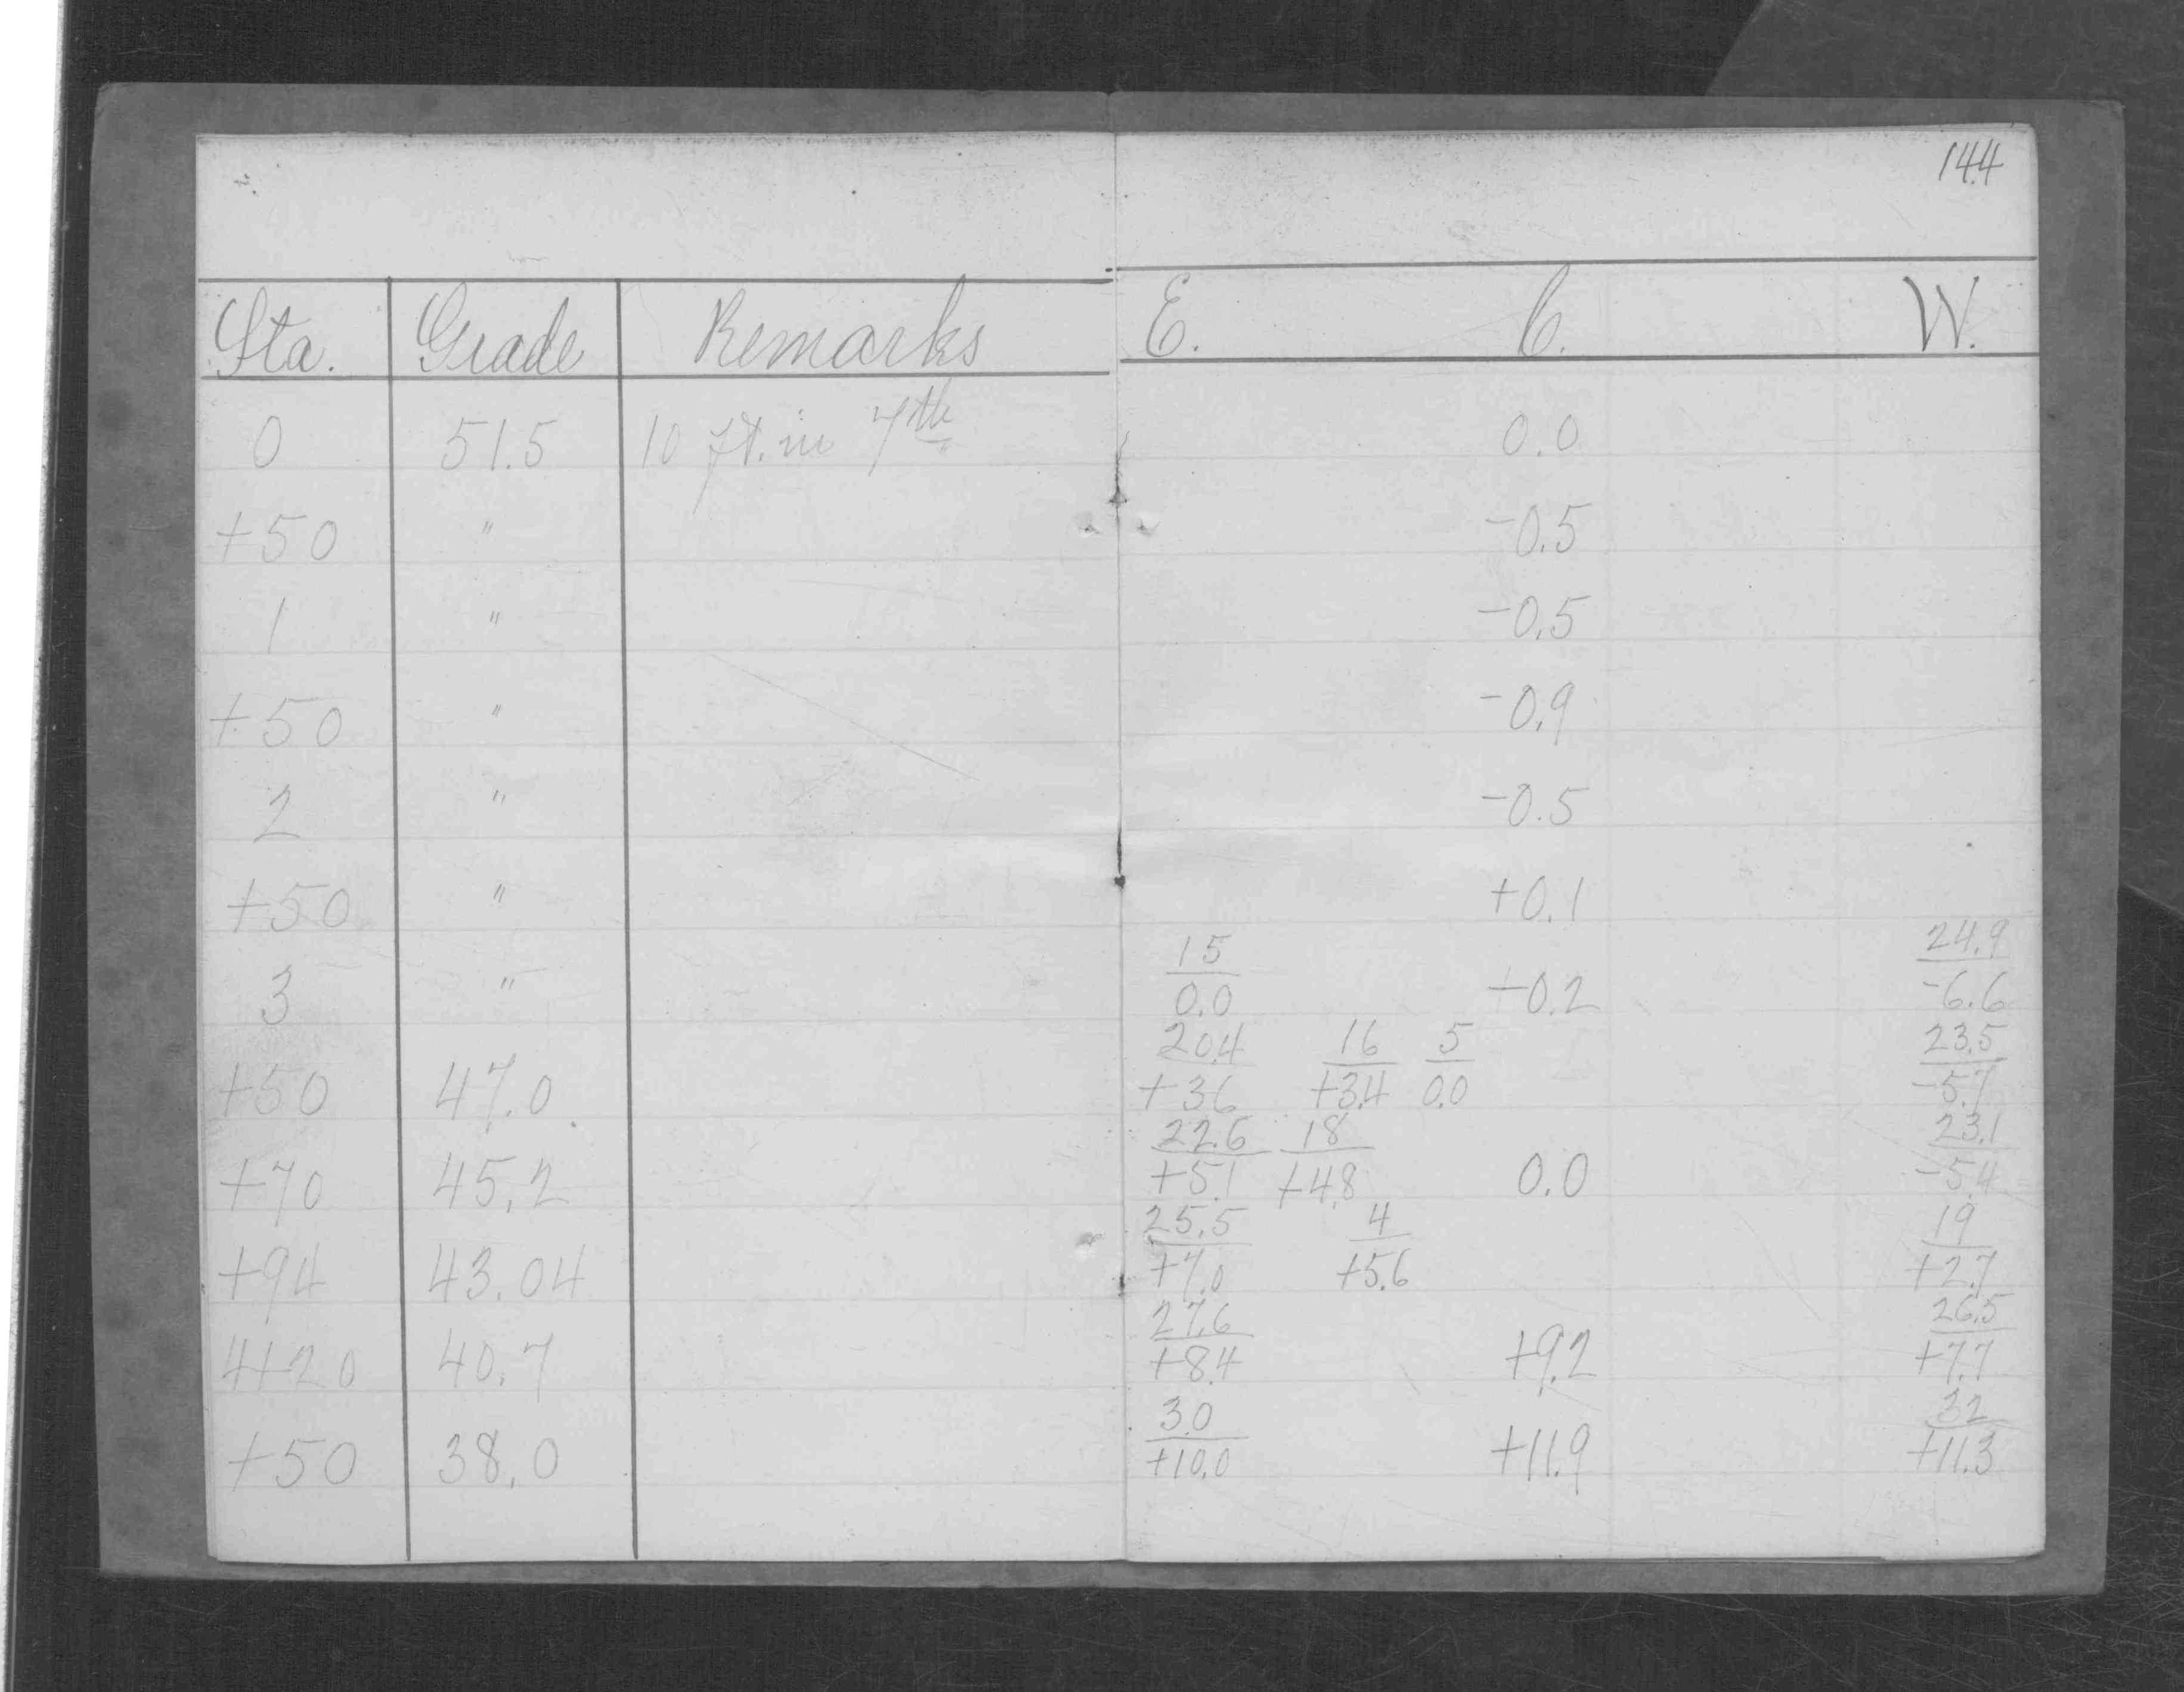 144
Sta. Grade Remarks E. C. W.
0 51.5 10 ft. in 7th 0.0
+50 " -0.5
1 " -0.5
+50 " -0.9
2 " -0.5
+50 " +0.1
15 24.9
3 " 0.0 +0.2 -6.6
20.4 16 5 23.5
+50 47.0 +3.6 +3.4 0.0 -5.7
22.6 18 23.1
+70 45.2 +5.1 +4.8 0.0 -5.4
25.5 4 19
+94 43.04 +7.0 +5.6 +2.7
27.6 26.5
4+20 40.7 +8.4 +9.2 +7.7
30 32
+50 38.0 +10.0 +11.9 +11.3